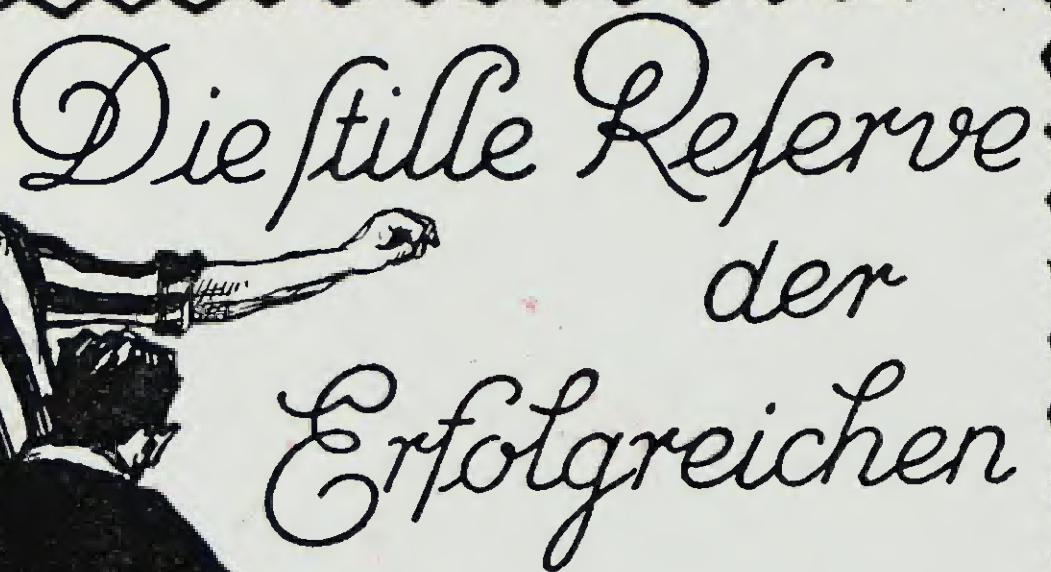 Die ſtille Reſerve
der
Erfolgreichen